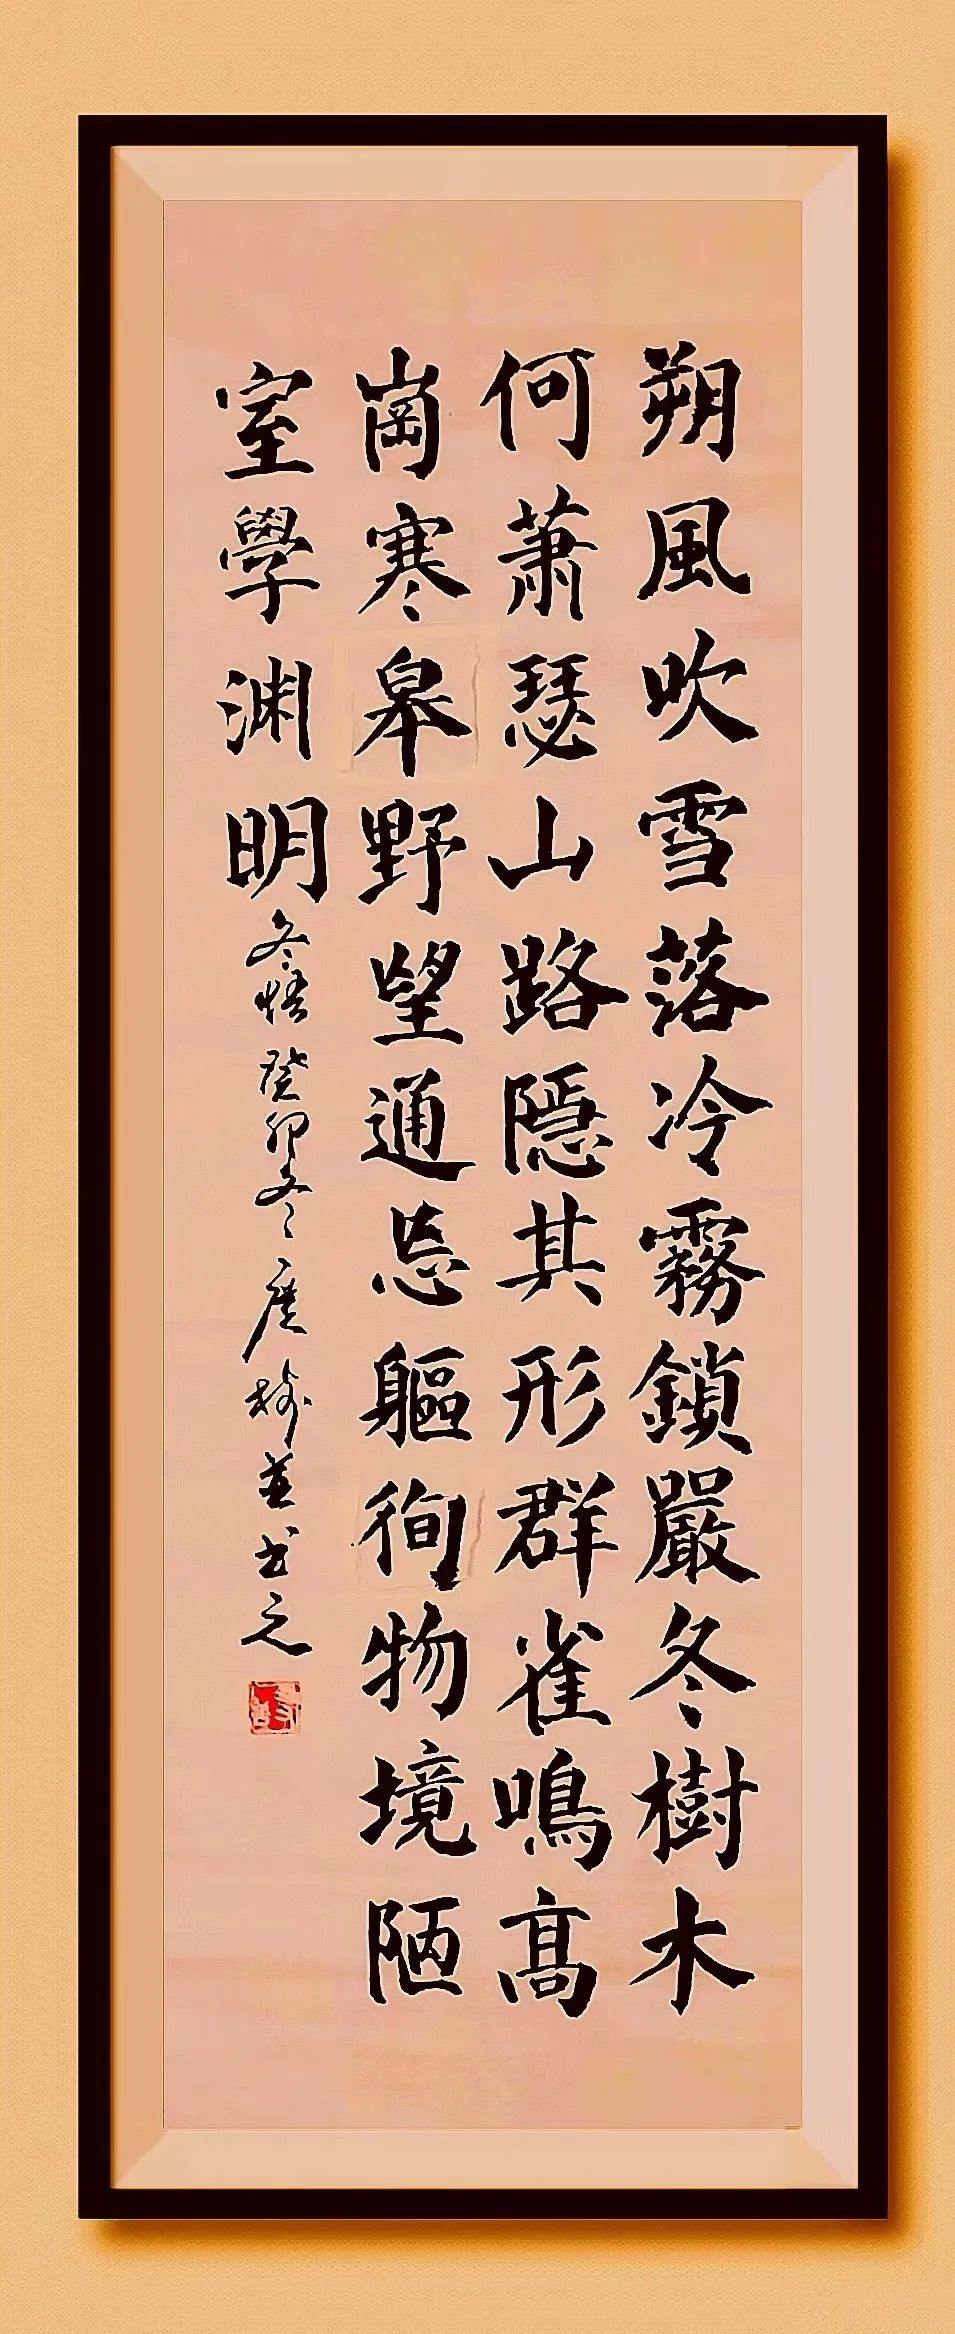 朔風吹雪落冷霧鎖嚴冬樹木
何蕭瑟山路隱其形群雀鳴高
崗寒皋野望通忘軀徇物境陋
室學淵明
冬悟 癸卯冬 廣樹並书之